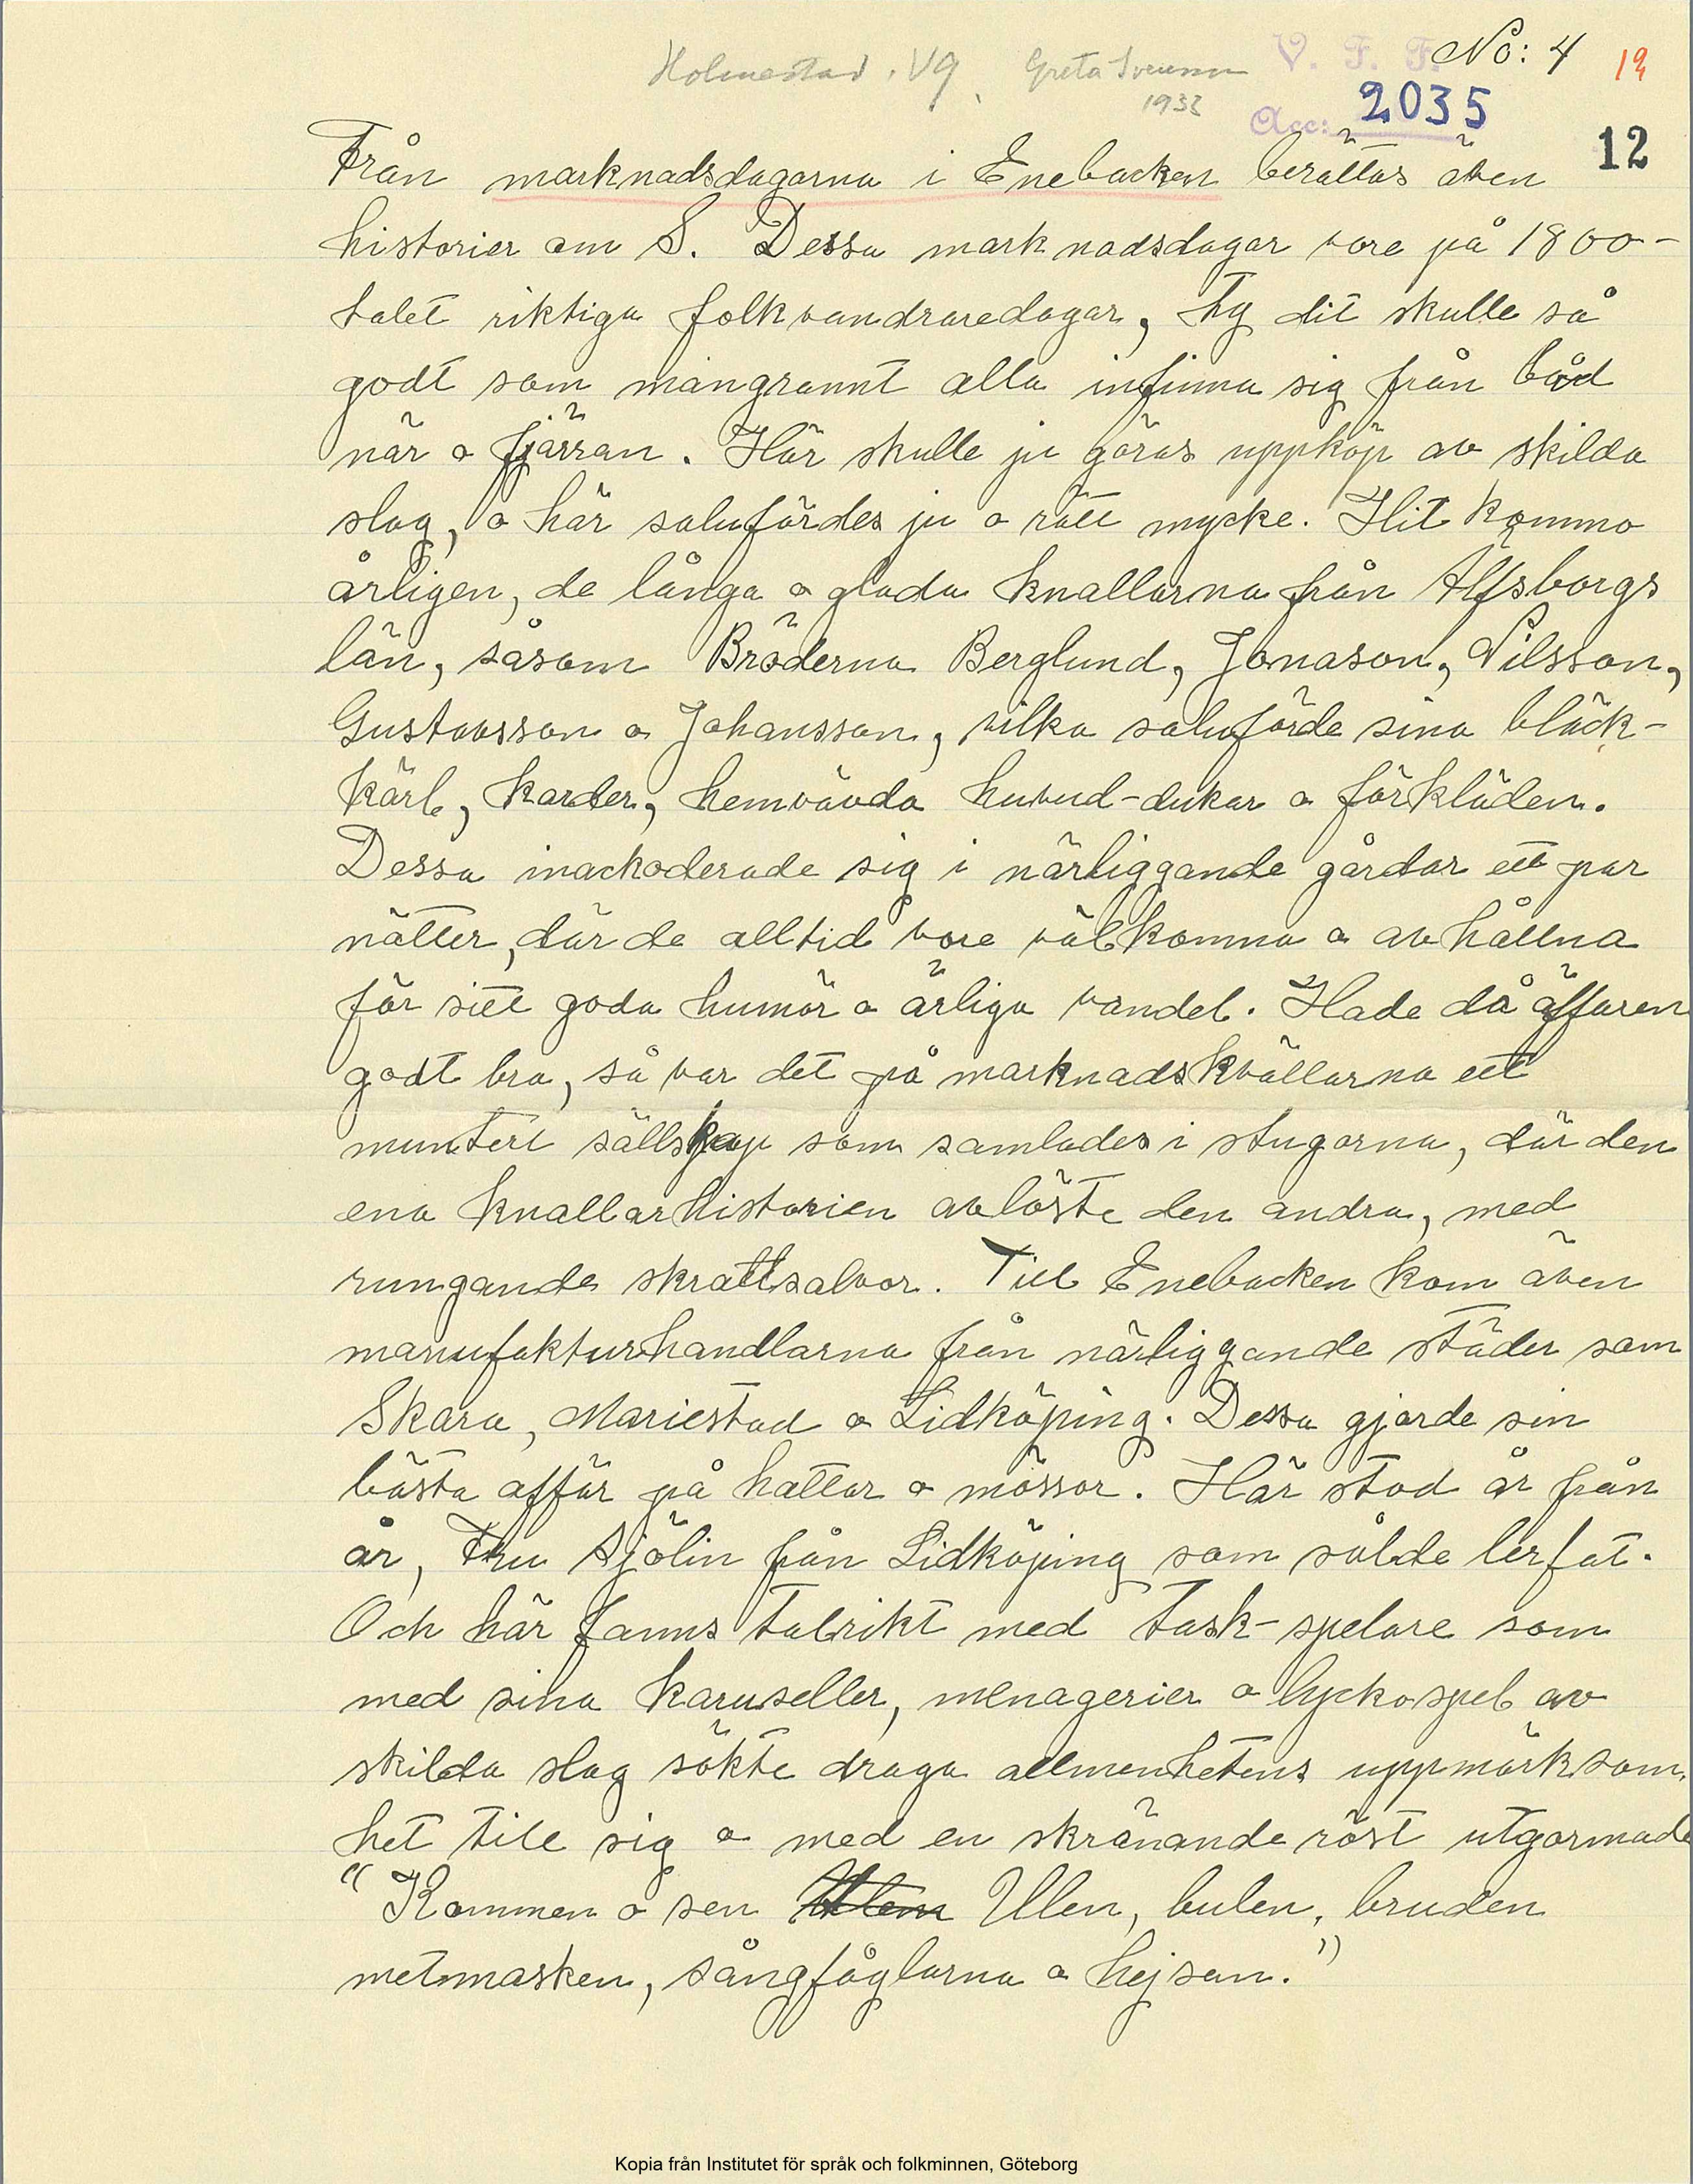 Holmestad. Vg. Greta Svensson V. F. F. No: 4 19
1933 Acc: 2035
12
Från marknadsdagarna i Enebacken berättas även
historier om S. Dessa marknadsdagar vore på 1800-
talet riktiga folkvandraredagar, ty dit skulle så
godt som mangrannt alla infinna sig från båd
när o fjärran. Här skulle ju göras uppköp av skilda
slag, o här salufördes ju o rätt mycke. Hit kommo
årligen, de långa o glada knallarna från Älfsborgs
län, såsom Bröderna Berglund, Jonason, Nilsson,
Gustavsson o Johansson, vilka saluförde sina bläck-
kärl, karder, hemvävda huvud-dukar o förkläden.
Dessa inackoderade sig i närliggande gårdar ett par
nätter, där de alltid vore välkomna o avhållna
för sitt goda humör o ärliga vandel. Hade då affären
godt bra, så var det på marknadskvällarna ett
muntert sällskap som samlades i stugorna, där den
ena knallarhistorien avlöste den andra, med
rungande skrattsalvor. Till Enebacken kom även
manufakturhandlarna från närliggande städer som
Skara, Mariestad o Lidköping. Dessa gjorde sin
bästa affär på hattar o mössor. Här stod år från
år, Fru Sjölin från Lidköping som sålde lerfat.
Och här fanns talrikt med task-spelare som
med sina karuseller, menagerier o lyckospel av
skilda slag sökte draga allmenhetens uppmärksam.
het till sig o med en skränande röst utgormade
"Kommen o sen Ulen, bulen, bruden
metmasken, sångfåglarna o hejsan."
Kopia från Institutet för språk och folkminnen, Göteborg